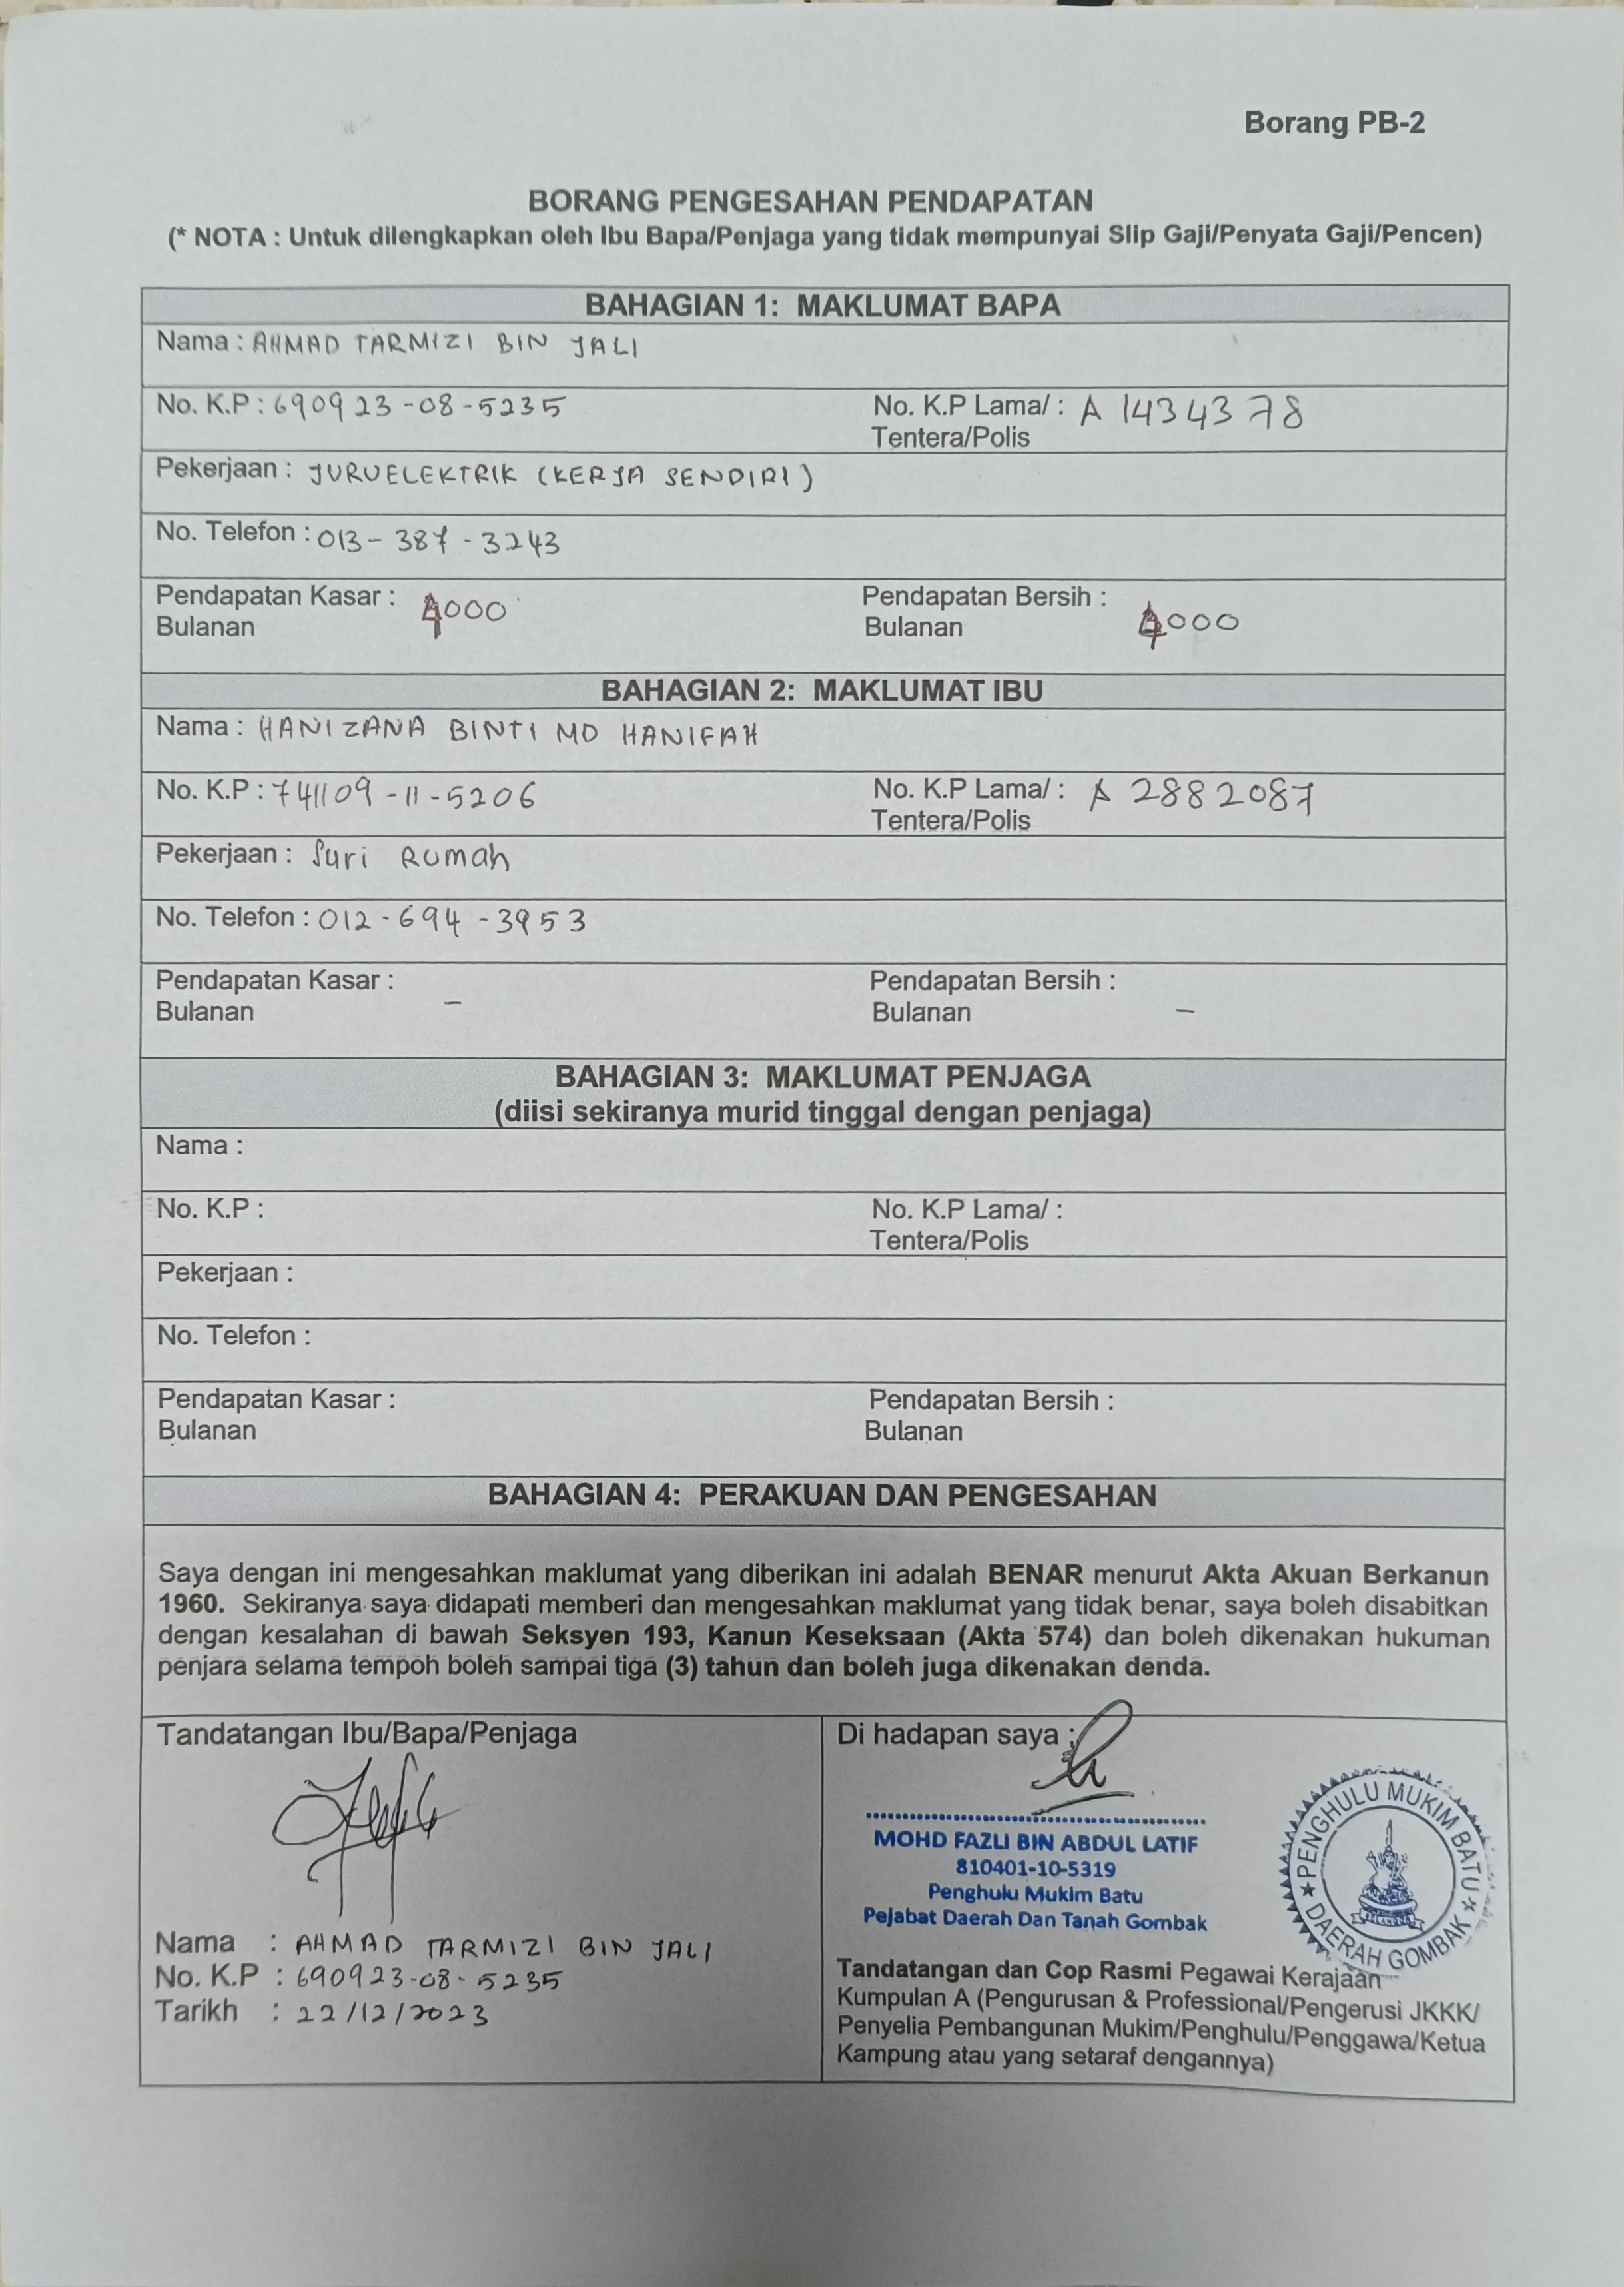 Borang PB-2
BORANG PENGESAHAN PENDAPATAN
(* NOTA : Untuk dilengkapkan oleh Ibu Bapa/Penjaga yang tidak mempunyai Slip Gaji/Penyata Gaji/Pencen)
BAHAGIAN 1: MAKLUMAT BAPA
Nama : AHMAD TARMIZI BIN JALI
No. K.P : 690923-08-5235 No. K.P Lama/ : A 1434378
Tentera/Polis
Pekerjaan : JURUELEKTRIK (KERJA SENDIRI)
No. Telefon : 013-387-3243
Pendapatan Kasar : 4000 Pendapatan Bersih : 4000
Bulanan Bulanan
BAHAGIAN 2: MAKLUMAT IBU
Nama : HANIZANA BINTI MD HANIFAH
No. K.P : 741109-11-5206 No. K.P Lama/ : A 2882087
Tentera/Polis
Pekerjaan : Suri Rumah
No. Telefon : 012-694-3953
Pendapatan Kasar : – Pendapatan Bersih : –
Bulanan Bulanan
BAHAGIAN 3: MAKLUMAT PENJAGA
(diisi sekiranya murid tinggal dengan penjaga)
Nama :
No. K.P : No. K.P Lama/ :
Tentera/Polis
Pekerjaan :
No. Telefon :
Pendapatan Kasar : Pendapatan Bersih :
Bulanan Bulanan
BAHAGIAN 4: PERAKUAN DAN PENGESAHAN
Saya dengan ini mengesahkan maklumat yang diberikan ini adalah BENAR menurut Akta Akuan Berkanun
1960. Sekiranya saya didapati memberi dan mengesahkan maklumat yang tidak benar, saya boleh disabitkan
dengan kesalahan di bawah Seksyen 193, Kanun Keseksaan (Akta 574) dan boleh dikenakan hukuman
penjara selama tempoh boleh sampai tiga (3) tahun dan boleh juga dikenakan denda.
Tandatangan Ibu/Bapa/Penjaga
Nama : AHMAD TARMIZI BIN JALI
No. K.P : 690923-08-5235
Tarikh : 22/12/2023
Di hadapan saya :
MOHD FAZLI BIN ABDUL LATIF
810401-10-5319
Penghulu Mukim Batu
Pejabat Daerah Dan Tanah Gombak
★ PENGHULU MUKIM BATU ★
DAERAH GOMBAK
Tandatangan dan Cop Rasmi Pegawai Kerajaan
Kumpulan A (Pengurusan & Professional/Pengerusi JKKK/
Penyelia Pembangunan Mukim/Penghulu/Penggawa/Ketua
Kampung atau yang setaraf dengannya)